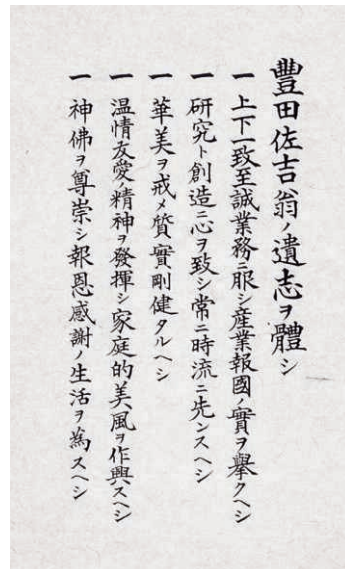 豐田佐吉翁ノ遺志ヲ體シ
一 上下一致至誠業務ニ服シ産業報國ノ實ヲ擧クヘシ
一 研究ト創造ニ心ヲ致シ常ニ時流ニ先ンスヘシ
一 華美ヲ戒メ質實剛健タルヘシ
一 温情友愛ノ精神ヲ發揮シ家庭的美風ヲ作興スヘシ
一 神佛ヲ尊崇シ報恩感謝ノ生活ヲ爲スヘシ